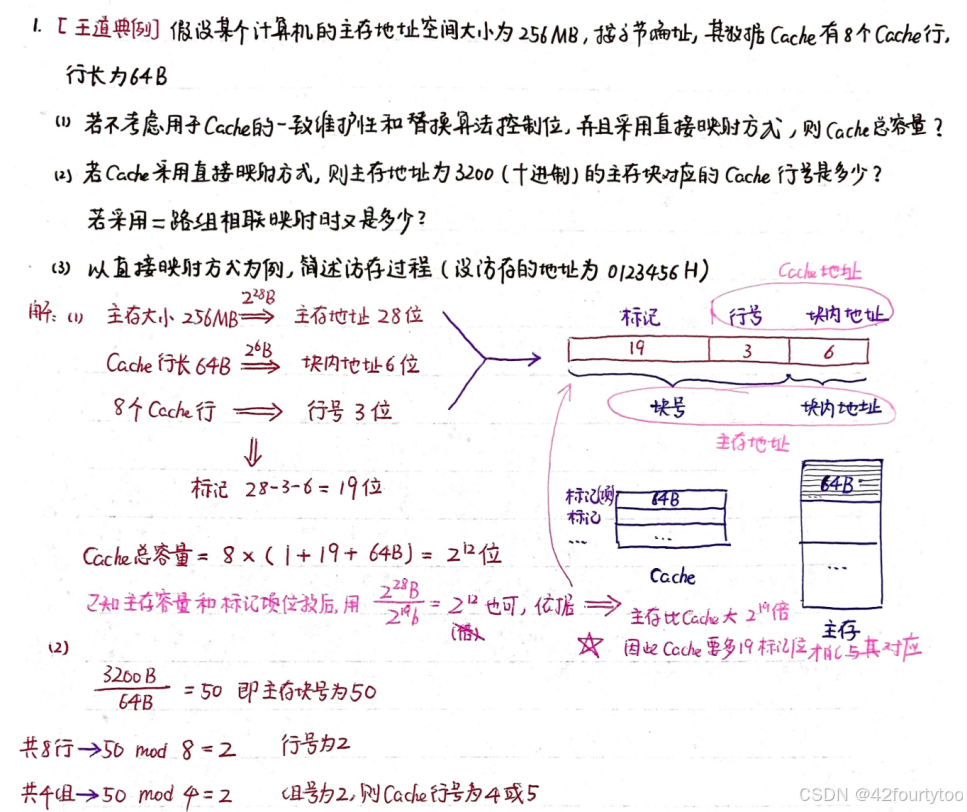 1. [王道典例] 假设某个计算机的主存地址空间大小为256MB, 按字节编址, 其数据Cache有8个Cache行,
行长为64B
(1) 若不考虑用于Cache的一致维护性和替换算法控制位, 并且采用直接映射方式, 则Cache总容量?
(2) 若Cache采用直接映射方式, 则主存地址为3200 (十进制) 的主存块对应的Cache行号是多少?
若采用二路组相联映射时又是多少?
(3) 以直接映射方式为例, 简述访存过程 (设访存的地址为 0123456H)
Cache地址
解: (1) 主存大小 256MB 2²⁸B ⟹ 主存地址 28位
标记 行号 块内地址
19 3 6
Cache行长 64B 2⁶B ⟹ 块内地址6位
8个Cache行 ⟹ 行号 3位
块号 块内地址
主存地址
⇓
标记 28-3-6 = 19位
标记(项) 64B
标记
... ...
Cache
64B
...
主存
Cache总容量 = 8 × (1 + 19 + 64B) = 2¹²位
已知主存容量和标记项位数后, 用 2²⁸B / 2¹⁹b = 2¹² 也可, 依据 ⟹ 主存比Cache大 2¹⁹倍
☆ 因此Cache要多19标记位才能与其对应
(2)
3200B / 64B = 50 即主存块号为50
共8行 → 50 mod 8 = 2 行号为2
共4组 → 50 mod 4 = 2 组号为2, 则Cache行号为4或5
CSDN @42fourtytoo